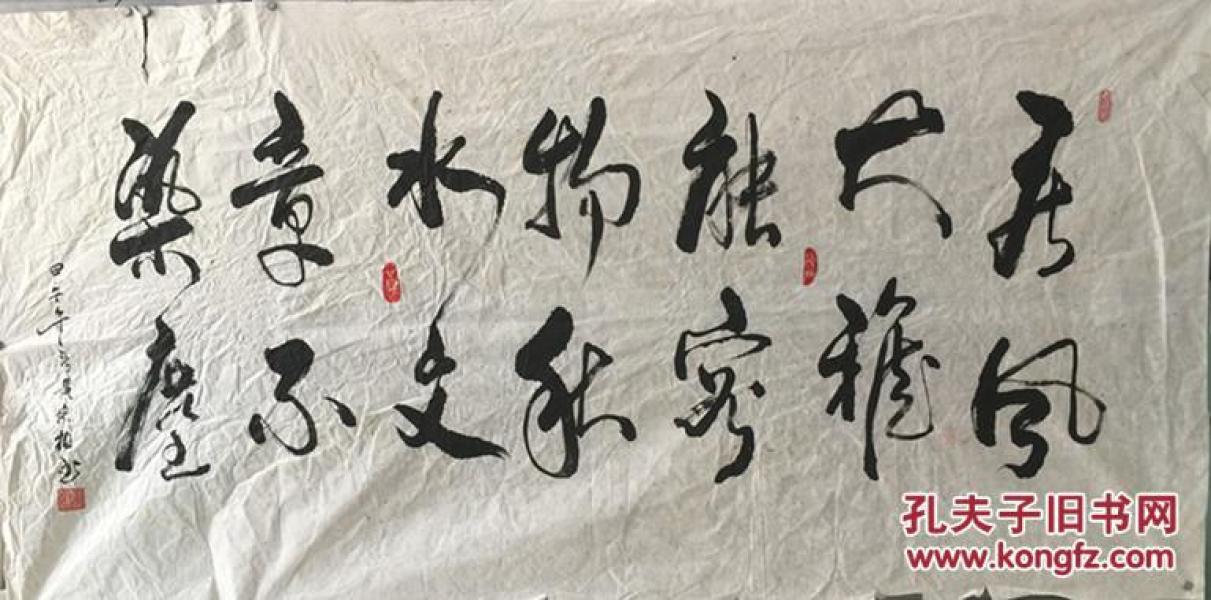 春风
大雅
能容
物秋
水文
章不
染塵
甲午年
孔夫子旧书网
www.kongfz.com